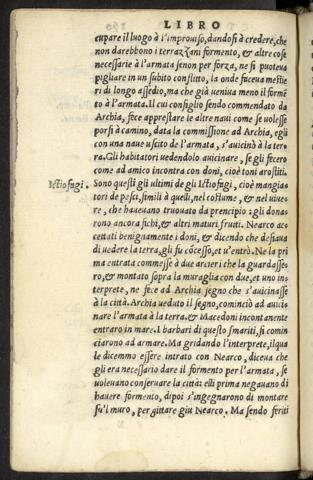 LIBRO
cupare il luogo à l'improuiso, dandosi à credere, che
non darebbono i terrazzani formento, & altre cose
necessarie à l'armata senon per forza, ne si poteua
pigliare in un subito conflitto, la onde faceua mestie
ri di longo assedio, ma che già veniua meno il formē
to à l'armata. Il cui consiglio sendo commendato da
Archia, fece apprestare le altre naui come se uolesse
porsi à camino, data la commissione ad Archia, egli
con una naue uscito de l'armata, s'auicinò à la ter-
ra. Gli habitatori uedendolo auicinare, se gli fecero
come ad amico incontra con doni, cioè toni arostiti.
Ictiofagi.
Sono questi gli ultimi de gli Ictiofagi, cioè mangia-
tori de pesci, simili à quelli, nel costume, & nel uiuere
re, che haueuano truouato da principio: gli dona-
rono ancora fichi, & altri maturi frutti. Nearco ac-
cettati benignamente i doni, & dicendo che desiaua
di uedere la terra, gli fu cōcesso, et u'entrò. Ne la pri
ma entrata commesse à due arcieri che la guardasse-
ro, & montato sopra la muraglia con due, et uno in-
terprete, ne fece ad Archia segno che s'auicinasse
à la città. Archia ueduto il segno, cominciò ad auici-
nare l'armata à la terra, & Macedoni incontanente
entraro in mare. I barbari di questo smariti, si comin
ciarono ad armare. Ma gridando l'interprete, ilqua
le dicemmo essere intrato con Nearco, diceua che
gli era necessario dare il formento per l'armata, se
uoleuano conseruare la città: elli prima negauano di
hauere formento, dipoi s'ingegnarono di montare
su'l muro, per gittare giu Nearco. Ma sendo feriti